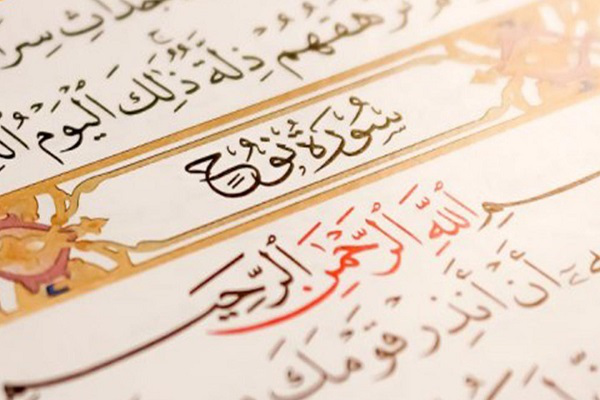 جْدَاثِ سِرَا
رْهَقُهُمْ ذِلَّةٌ ذَٰلِكَ ٱلْيَوْمُ
سُورَةُ نُوحٍ
سْمِ ٱللَّهِ ٱلرَّحْمَٰنِ ٱلرَّحِيمِ
أَنْ أَنذِرْ قَوْمَكَ